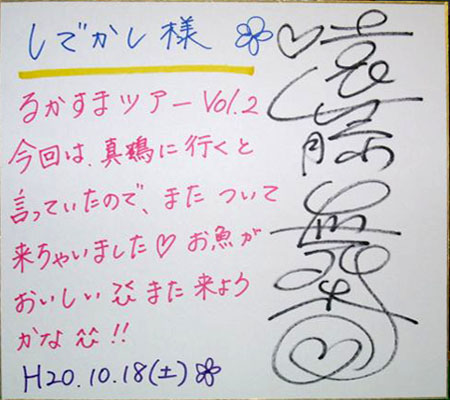 しでかし様
るかすまツアー Vol.2
今回は、真鶴に行くと
言っていたので、また ついて
来ちゃいました♡ お魚が
おいしい また来よう
かな !!
H20.10.18(土)